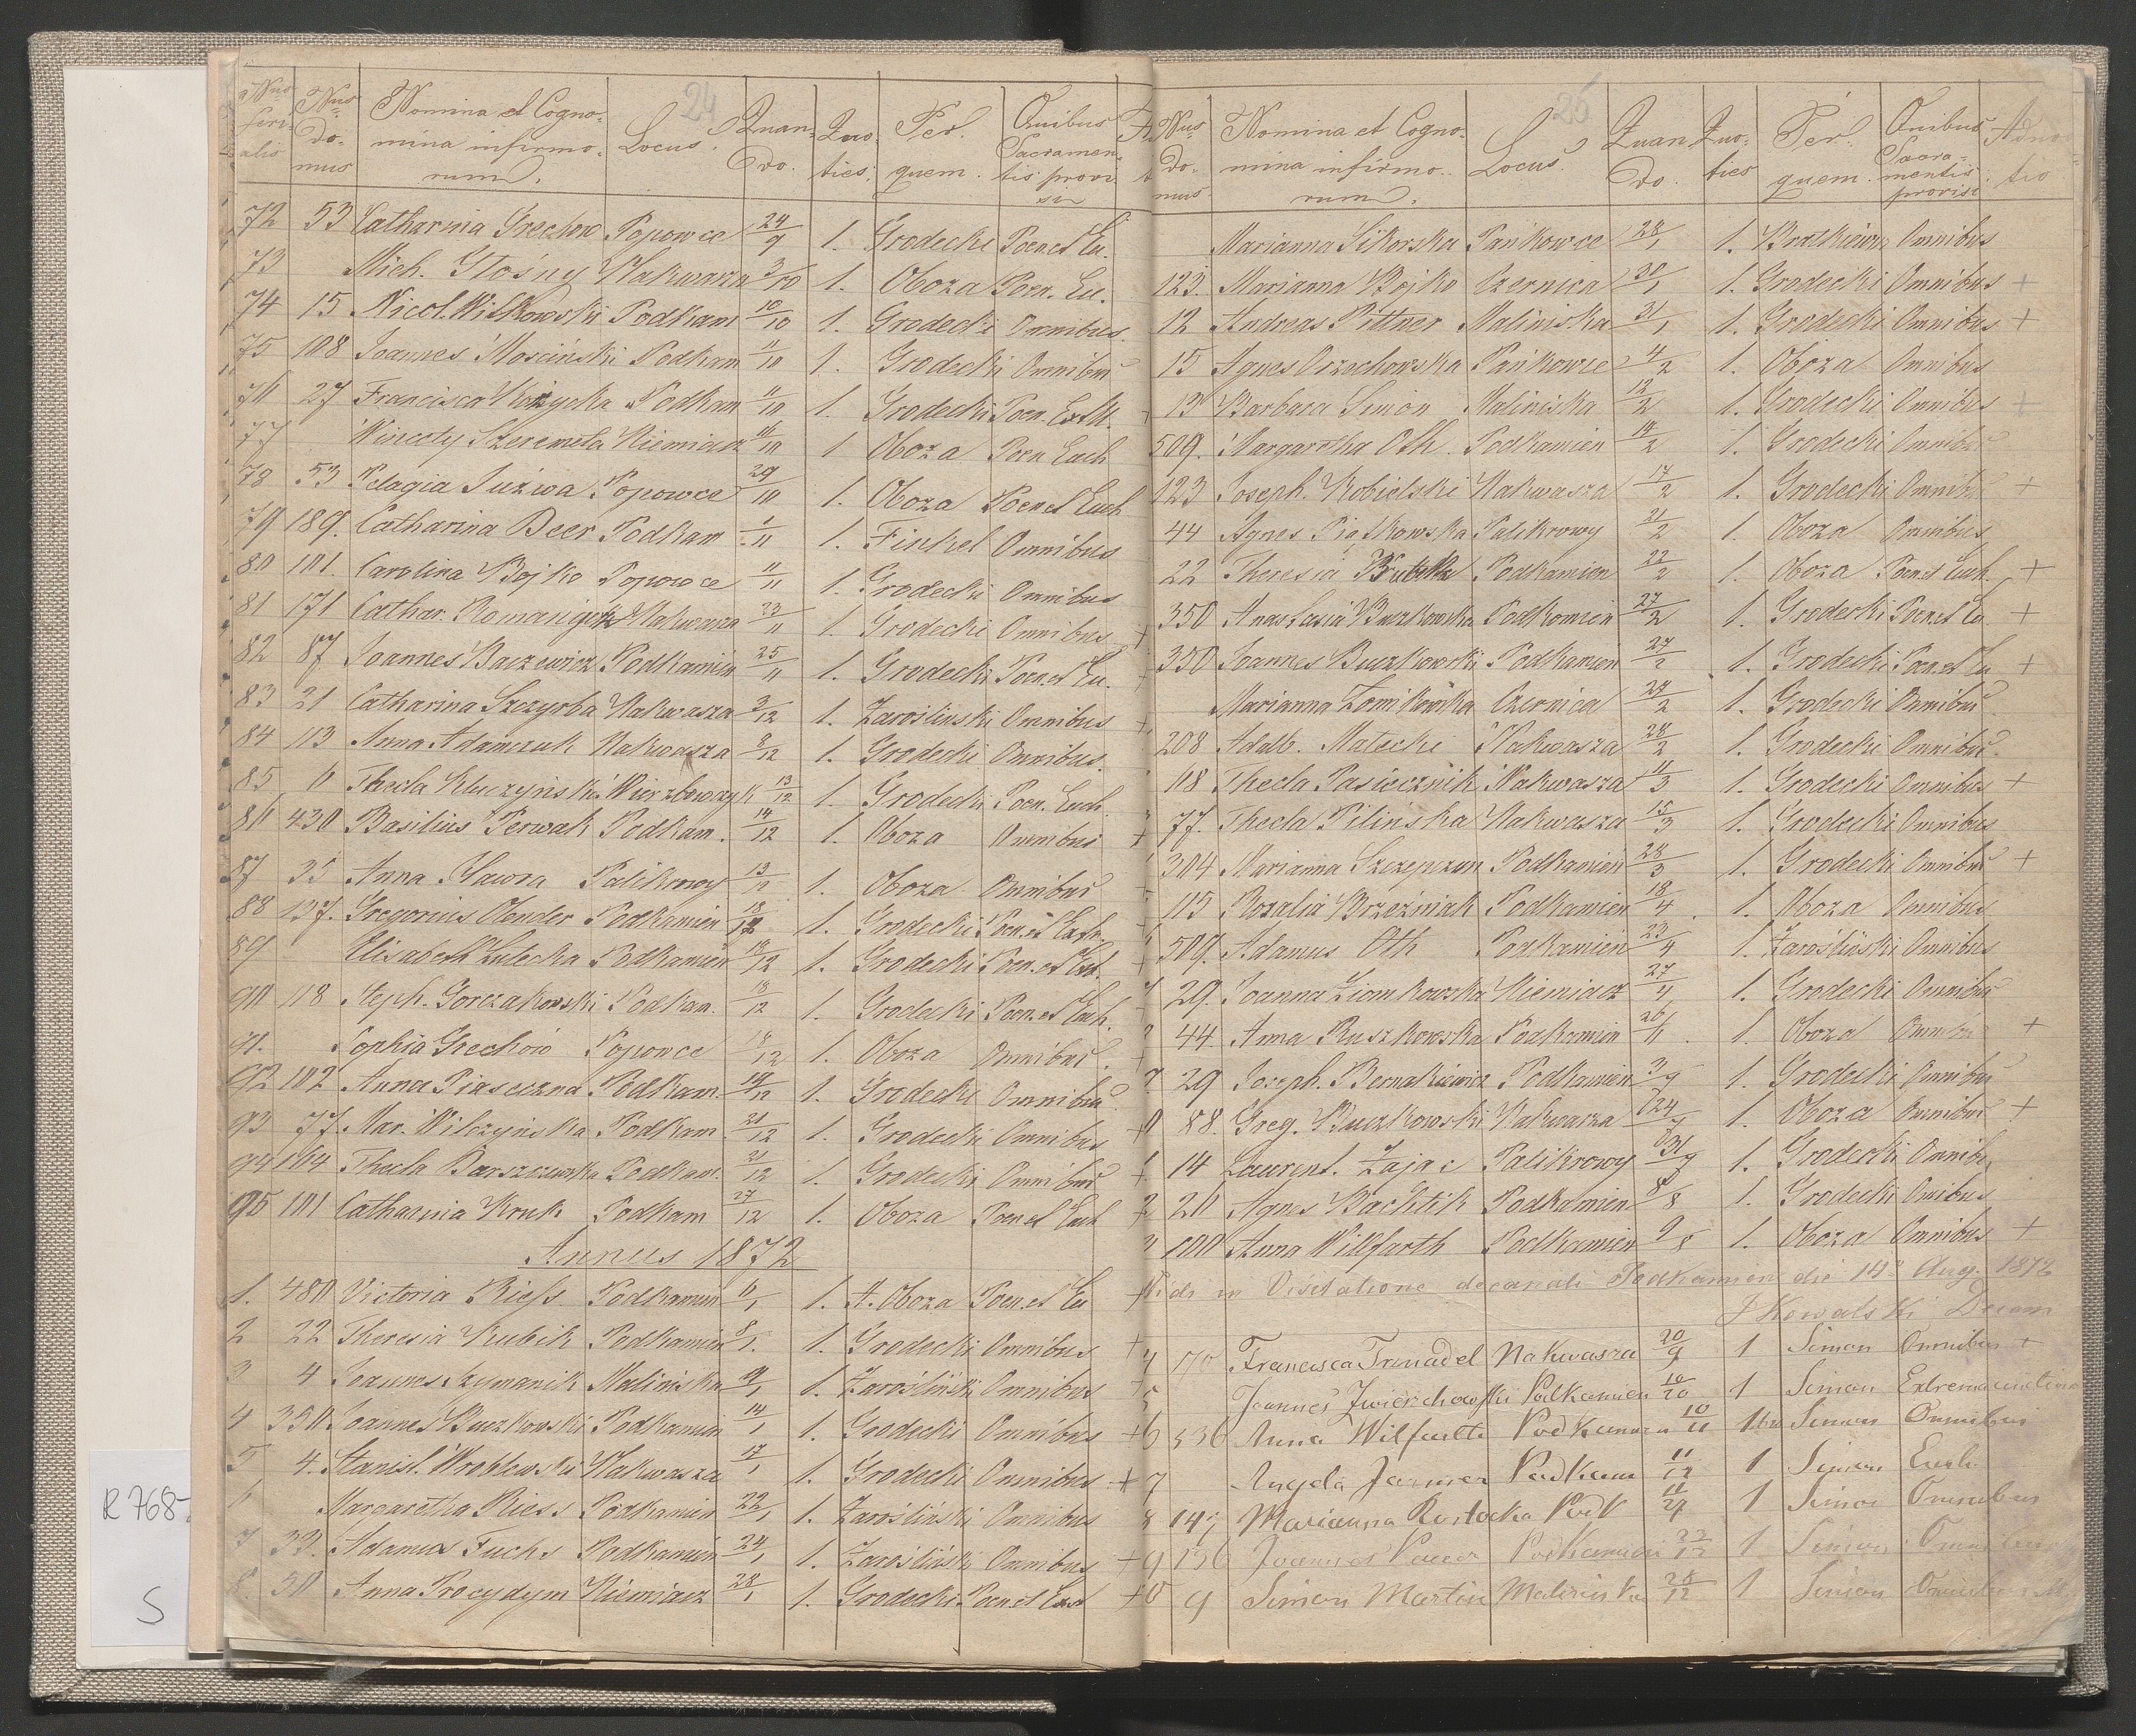 24
Nrus seri-alis Nrus Do-mus Nomina et Cogno-mina infirmo-rum. Locus. Quan-do. Quo-ties. Per quem. Quibus Sacramen-tis provi-si
72 53 Catharina Grechow Popowce 24/9 1. Grodecki Poen. et Eu.
73 Mich. Głośny Nakwasza 3/10 1. Oboza Poen. Eu.
74 15 Nicol. Witkowski Podkam 10/10 1. Grodecki Omnibus.
75 108 Joannes Mosciński Podkam 11/10 1. Grodecki Omnibus
76 27 Francisca Podkam 11/10 1. Grodecki Poen.
77 Wincety Szeremeta Niemiacz 16/10 1 Oboza Poen Euch
78 53 Pelagia Suzwa Popowce 29/10 1. Oboza Poen et Euch
79 189. Catharina Beer Podkam 1/11 1. Finkel Omnibus
80 101. Carolina Bojko Popowce 11/11 1. Grodecki Omnibus
81 171 Cathar. Nakwasza 23/11 1. Grodecki Omnibus +
82 87 Joannes Baczewicz Podkamien 25/11 1. Grodecki Poen. et Eu. +
83 21 Catharina Szczyrba Nakwasza 3/12 1. Zarośliński Omnibus +
84 113 Anna Adamczuk Nakwasza 8/12 1. Grodecki Omnibus.
85 11 Thecla Kluczyńska Wierzbowczyk 13/12 1. Grodecki Poen. Euch.
86 430 Basilius Perwak Podkam. 14/12 1. Oboza Omnibus +
87 35 Anna Hawra Palikrowy 13/12 1. Oboza Omnibus
88 137. Gregorius Olender Podkamien 18/12 1. Grodecki Poen. et Euch.
89 Elisabeth Zulecka Podkamień 18/12 1. Grodecki Poen. et Euch. +
90 118 Steph. Gorczakowski Podkam. 18/12 1. Grodecki Poen. et Euch.
91. Sophia Grechów Popowce 8/12 1. Oboza Omnibus. +
92 102 Anna Piaseczna Podkam. 19/12 1. Grodecki Omnibus
93 77. Mar. Wilczyńska Podkam. 21/12 1. Grodecki Omnibus +
94 164 Thecla Barszczewska Podkam. 21/12 1. Grodecki Omnibus +
95 101 Catharina Kruk Podkam 27/12 1. Oboza Poen et Euch +
Annus 1872
1. 480 Victoria Riess Podkamien 6/1 1. A. Oboza Poen. et Eu +
2 22 Theresia Kubik Podkamien 8/1. 1. Grodecki Omnibus +
3 4 Joannes Szymanik Maliniska 9/1 1. Zarośliński Omnibus +
4 350 Joannes Buczkowski Podkamien 14/1 1. Grodecki Omnibus +
5 4. Stanisl. Wroblewski Nakwasza 17/1 1. Grodecki Omnibus +
6 Margaretha Riess Podkamien 22/1 1. Zarośliński Omnibus
7 33. Adamus Fuchs Podkamień 24/1 1. Zarośliński Omnibus +
8. 50 Anna Procydym Niemiacz 28/1 1. Grodecki Poen. et Euch +
25
Nrus Do-mus Nomina et Cogno-mina infirmo-rum. Locus. Quan-do. Quo-ties Per quem. Quibus Sacra-mentis provisi. Adno-tio
Marianna Sikorska Pańkowce 28/1 1. Omnibus
123. Marianna Bojko Czernica 30/1 1. Grodecki Omnibus +
12 Andreas Pittner Maliniska 31/1 1. Grodecki Omnibus +
15 Agnes Orzechowska Pańkowce 4/2 1. Oboza Omnibus
13 Barbara Simon Maliniska 12/2 1. Grodecki Omnibus +
509. Margaretha Oth. Podkamien 14/2 1. Grodecki Omnibus
123 Joseph. Kobielski Nakwasza 17/2 1. Grodecki Omnibus +
44 Agnes Piątkowska Palikrowy 21/2 1. Oboza Omnibus
22 Theresia Kubik Podkamien 22/2 1. Oboza Poen. et Euch. +
350 Anastasia Buczkowska Podkamien 27/2 1. Grodecki Poen. et Eu +
350 Joannes Buczkowski Podkamien 27/2 1. Grodecki Poen. et Eu +
Marianna Czernica 27/2 1. Grodecki Omnibus
208 Adalb. Małecki Nakwasza 28/2 1. Grodecki Omnibus.
118 Thecla Pasiecznik Nakwasza 11/3 1. Grodecki Omnibus +
77. Thecla Pilińska Nakwasza 15/3 1. Grodecki Omnibus
304 Marianna Szczepczun Podkamień 28/3 1. Grodecki Omnibus +
115 Rozalia Brzeźniak Podkamien 18/4 1. Oboza Omnibus
507. Adamus Oth Podkamien 23/4 1. Zarośliński Omnibus
29. Joanna Ziomkowska Niemiacz 27/4 1. Grodecki Omnibus
44. Anna Ruszkowska Podkamien 26/6 1. Oboza Omnibus +
29 Joseph. Podkamien 3/7 1. Grodecki Omnibus
88. Greg. Buczkowski Nakwasza 24/7 1. Oboza Omnibus +
14 Laurent. Zając Palikrowy 31/7 1. Grodecki Omnibus
20 Agnes Bachtik Podkamien 8/8 1. Grodecki Omnibus
100 Anna Wilfarth Podkamien 9/8 1. Oboza Omnibus +
Vidi in Visitatione decanali Podkamieni die 14a Aug. 1872
JKowalski Decan
4 170 Francisca Trinadel Nakwasza 20/9 1 Simon Omnibus +
5 Joannes Zwierzchowski Podkamien 10/10 1 Simon Extrema unctione
6 536 Anna Wilfarth Podkamien 10/11 1 Simon Omnibus
7 Angela Podkam 11/12 1 Simon Euch.
8 Marianna Rostocka Podk 1 Simon Omnibus
9 136 Joannes Podkamien 23/12 1 Simon Omnibus
10 9 Simon Martin Maliniska 28/12 1 Simon Omnibus
R 768-
S